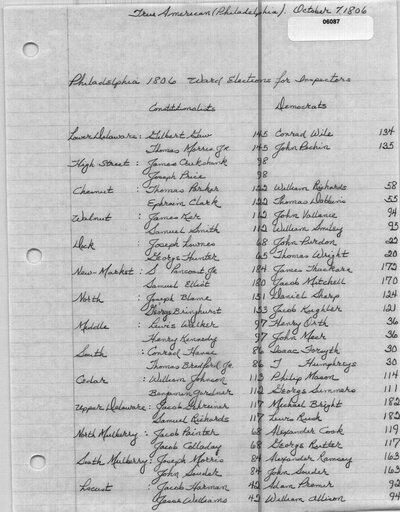 True American (Philadelphia). October 7, 1806
06087
Philadelphia 1806 Ward Elections for Inspectors
Constitutionalists Democrats
Lower Delaware: Gilbert Gaw 145 Conrad Wile 134
Thomas Morris Jr. 145 John Pechin 135
High Street: James Crukshank 98
Joseph Price 98
Chesnut: Thomas Parker 122 William Richards 58
Ephraim Clark 122 Thomas 55
Walnut: James Ker 112 John Vallance 94
Samuel Smith 112 William Smiley 93
Dock: Joseph Lownes 68 John Purdon 22
George Hunter 65 Thomas Wright 20
New-Market: S Pancoast Jr. 184 James Thackara 172
Samuel Elliot 180 Jacob Mitchell 170
North: Joseph 151 Daniel Sharp 124
George Bringhurst 153 Jacob 121
Middle: Lewis Walker 97 Henry Orth 36
Henry Kennedy 97 John 36
South: Conrad Hanse 86 Isaac Forsyth 30
Thomas Bradford Jr. 86 Humphreys 30
Cedar: William Johnson 113 Philip Mason 114
Benjamin Gardiner 112 George Simmers 111
Upper Delaware: Jacob 117 Michael Bright 182
Samuel Richards 117 Lewis Rush 182
North Mulberry: Jacob Painter 68 Alexander Cook 119
Jacob Colladay 68 George Rutter 117
South Mulberry: Joseph Morris 84 Alexander Ramsey 163
John Souder 84 John Souder 163
Locust Jacob Harman 42 Adam Promer 92
Jesse Williams 42 William Allison 94